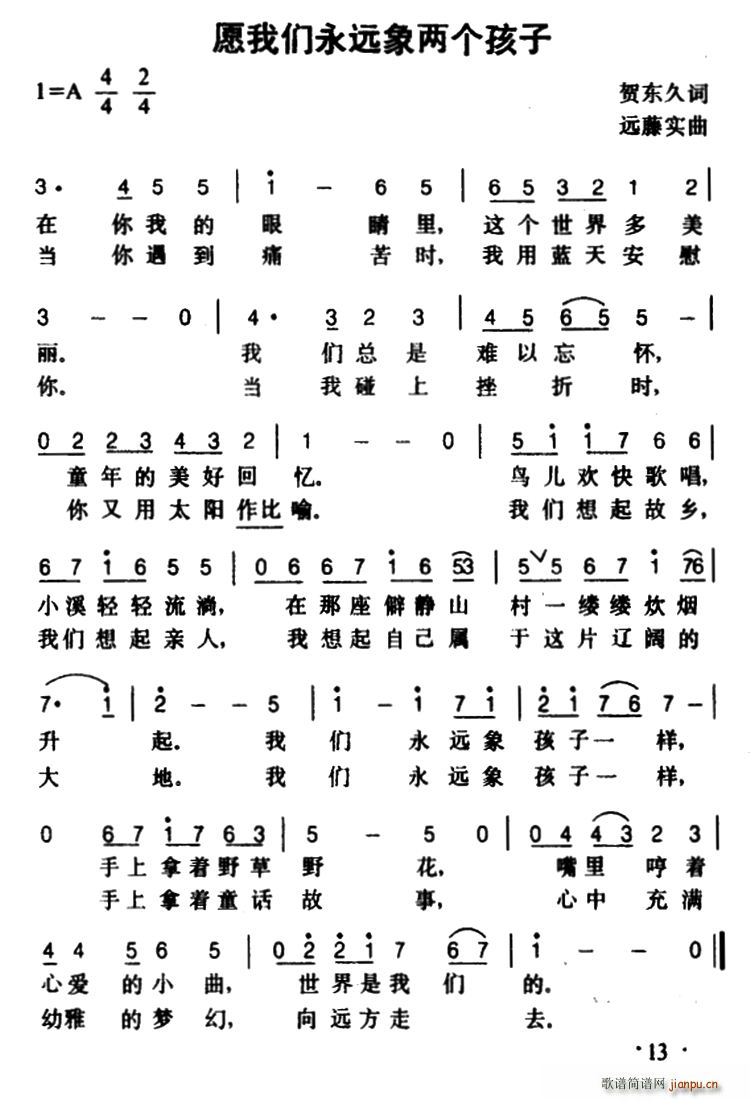 愿我们永远象两个孩子
1=A 4/4 2/4
贺东久词
远藤实曲
3· 4 5 5 | i - 6 5 | 6 5 3 2 1 2 |
在 你我的 眼 睛里, 这个世界多美
当 你遇到 痛 苦时, 我用蓝天安慰
3 - - 0 | 4· 3 2 3 | 4 5 6 5 5 - |
丽. 我 们总是 难以忘 怀,
你. 当 我碰上 挫 折 时,
0 2 2 3 4 3 2 | 1 - - 0 | 5 i i 7 6 6 |
童年的美好回 忆. 鸟儿欢快歌唱,
你又用太阳作比喻. 我们想起故乡,
6 7 i 6 5 5 | 0 6 6 7 i 6 53 | 5 ∨ 5 6 7 i 76 |
小溪轻轻流淌, 在那座僻静山 村一缕缕炊烟
我们想起亲人, 我想起自己属 于这片辽阔的
7· i | 2 - - 5 | i - i 7 i | 2 i 7 6 7 - |
升 起. 我 们 永远象 孩子一 样,
大 地. 我 们 永远象 孩子一 样,
0 6 7 i 7 6 3 | 5 - 5 0 | 0 4 4 3 2 3 |
手上拿着野草 野 花, 嘴里 哼着
手上拿着童话 故 事, 心中 充满
4 4 5 6 5 | 0 2 2 i 7 6 7 | i - - 0 ‖
心爱 的小曲, 世界是我 们 的.
幼雅 的梦幻, 向远方走 去.
· 13 ·
歌谱简谱网 jianpu.cn